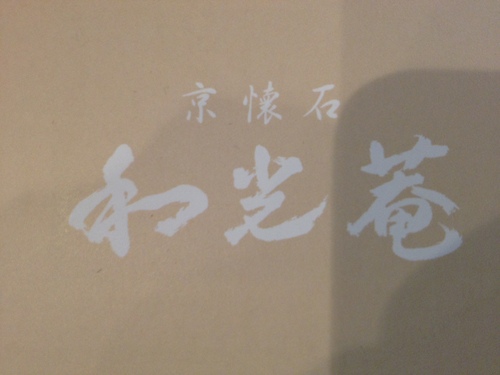 京懐石
和光菴